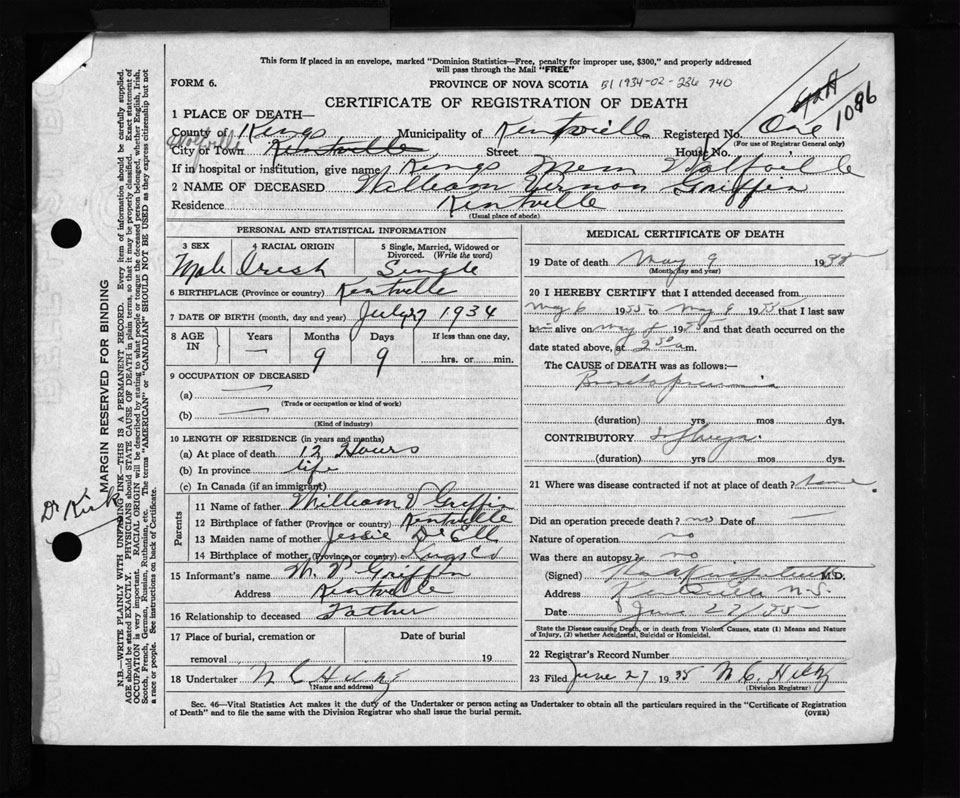 This form if placed in an envelope, marked "Dominion Statistics—Free, penalty for improper use, $300," and properly addressed
will pass through the Mail "FREE"
FORM 6.
PROVINCE OF NOVA SCOTIA
CERTIFICATE OF REGISTRATION OF DEATH
1086
1 PLACE OF DEATH—
County of Kings Municipality of Kentvill Registered No. One
(For use of Registrar General only)
Wolfville
City or Town Kentville Street House No.
If in hospital or institution, give name Kings Mem Wolfville
2 NAME OF DECEASED William Vernon Griffin
Residence Kentville
(Usual place of abode)
PERSONAL AND STATISTICAL INFORMATION
3 SEX 4 RACIAL ORIGIN 5 Single, Married, Widowed or Divorced. (Write the word)
Male Irish Single
6 BIRTHPLACE (Province or country) Kentville
7 DATE OF BIRTH (month, day and year) July 27 1934
8 AGE IN Years Months Days If less than one day,
— 9 9 hrs. or min.
9 OCCUPATION OF DECEASED
(a) —
(Trade or occupation or kind of work)
(b) —
(Kind of industry)
10 LENGTH OF RESIDENCE (in years and months)
(a) At place of death 12 Hours
(b) In province life
(c) In Canada (if an immigrant)
Parents
11 Name of father William V Griffin
12 Birthplace of father (Province or country) Kentville
13 Maiden name of mother Jessie
14 Birthplace of mother (Province or country) Kings Co
15 Informant's name Griffin
Address Kentville
16 Relationship to deceased Father
17 Place of burial, cremation or removal Date of burial 19
18 Undertaker
(Name and address)
MEDICAL CERTIFICATE OF DEATH
19 Date of death May 9 19
(Month, day and year)
20 I HEREBY CERTIFY that I attended deceased from
May 6 1935 to May 1935 that I last saw
him alive on May 19 and that death occurred on the
date stated above, at 2 30 a.m.
The CAUSE of DEATH was as follows:—
Bronchopneumonia
(duration) yrs mos dys.
CONTRIBUTORY Influenza
(duration) yrs mos dys.
21 Where was disease contracted if not at place of death? home
Did an operation precede death? no Date of —
Nature of operation no
Was there an autopsy? no
(Signed) M.D.
Address Kentville N.S.
Date June 27/
State the Disease causing Death, or in death from Violent Causes, state (1) Means and Nature
of Injury, (2) whether Accidental, Suicidal or Homicidal.
22 Registrar's Record Number
23 Filed June 27 1935
(Division Registrar)
Sec. 46—Vital Statistics Act makes it the duty of the Undertaker or person acting as Undertaker to obtain all the particulars required in the "Certificate of Registration
of Death" and to file the same with the Division Registrar who shall issue the burial permit. (OVER)
MARGIN RESERVED FOR BINDING
Dr Kirk
N.B.—WRITE PLAINLY WITH UNFADING INK—THIS IS A PERMANENT RECORD. Every item of information should be carefully supplied.
AGE should be stated EXACTLY. PHYSICIANS should STATE CAUSE OF DEATH in plain terms, so that it may be properly classified. Exact statement of
OCCUPATION is very important. RACIAL ORIGIN will be described by stating to what people or tongue the deceased person belonged, whether English, Irish,
Scotch, French, German, Russian, Ruthenian, etc. The terms "AMERICAN" or "CANADIAN" SHOULD NOT BE USED as they express citizenship but not
a race or people. See instructions on back of Certificate.